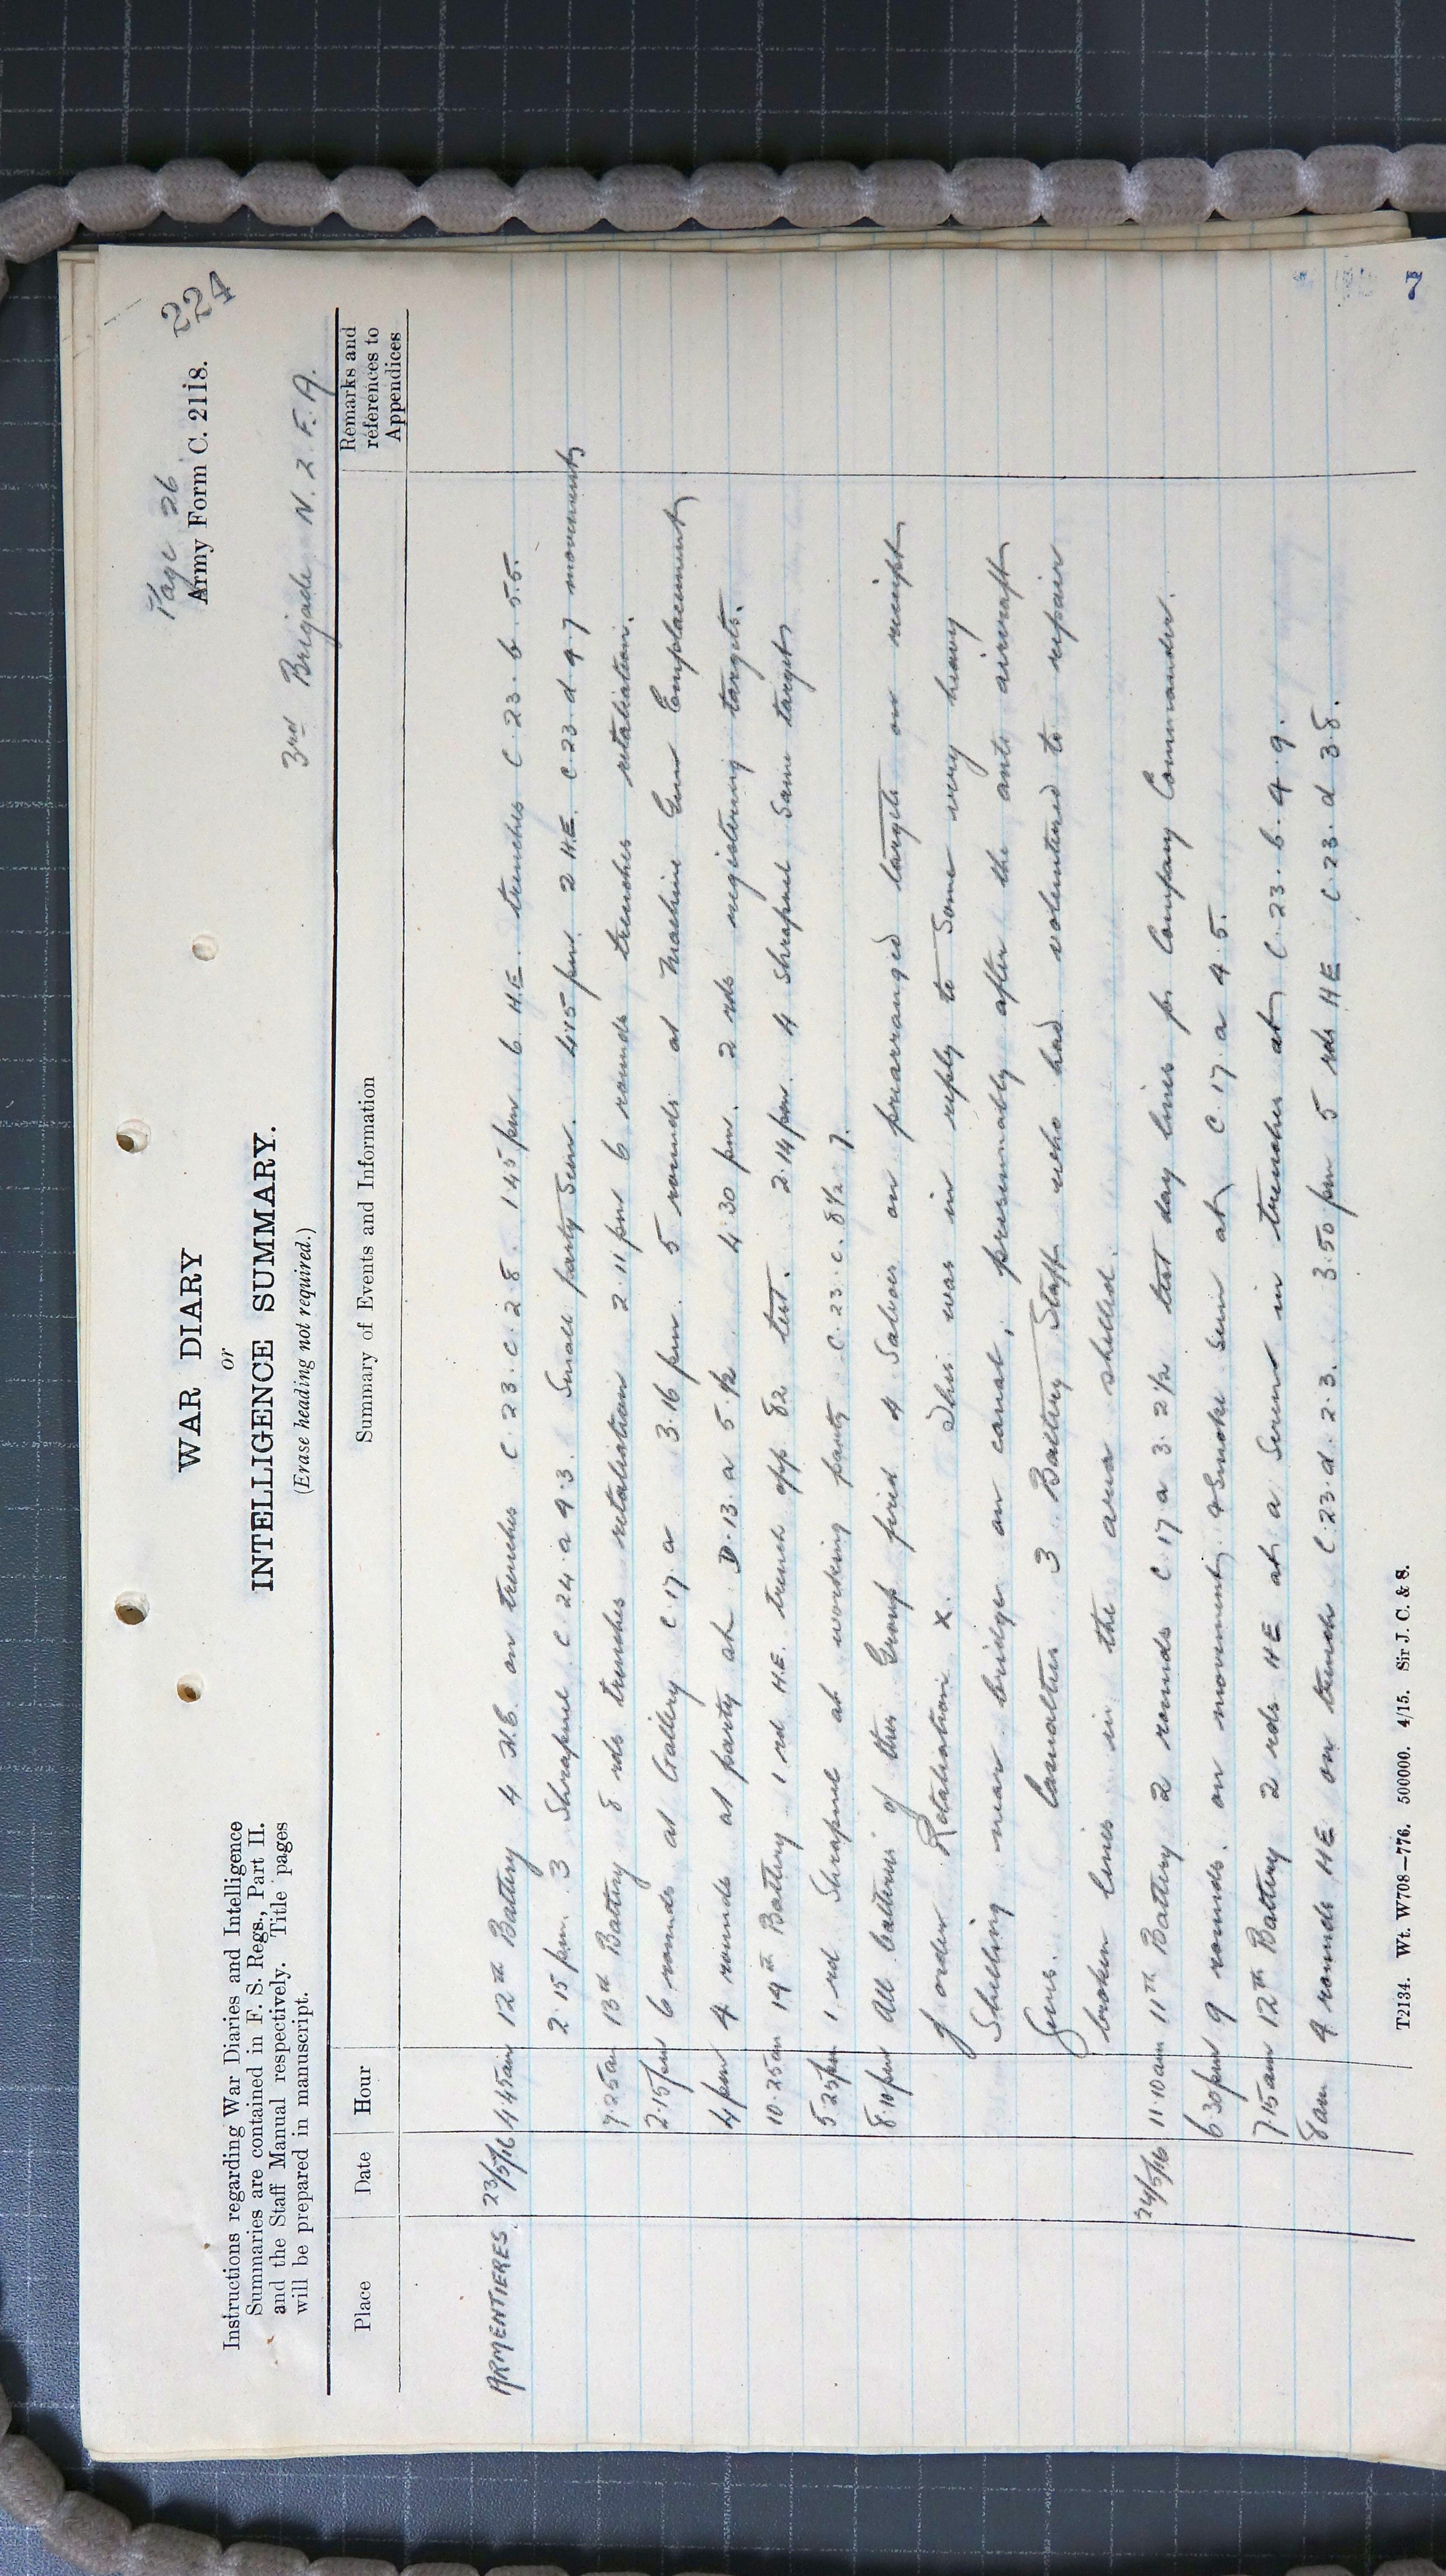 Page 26
Army Form C. 2118.
224
WAR DIARY
or
INTELLIGENCE SUMMARY.
(Erase heading not required.)
Instructions regarding War Diaries and Intelligence
Summaries are contained in F. S. Regs., Part II.
and the Staff Manual respectively. Title pages
will be prepared in manuscript.
3rd Brigade N.Z.F.A.
Place Date Hour Summary of Events and Information Remarks and references to Appendices
ARMENTIERES 23/5/16 4.45am 12th Battery 4 H.E. on trenches C.23.c.2.8. 1.45 pm 6 H.E. trenches C.23.b.5.5.
2.15 pm. 3 Shrapnel C 24.a 9.3. Small party seen. 4.15 pm. 2 H.E. C.23.d 9.7 movement
7.25am 13th Battery 8 rds trenches retaliation 2.11 pm 6 rounds trenches retaliation.
2.15pm 6 rounds at Gallery C.17.a 3.16 pm. 5 rounds at Machine Gun Emplacement
4pm 4 rounds at party at D.13.a 5.½ 4.30 pm. 2 rds registering targets.
10.25am 14th Battery 1 rd H.E. trench opp 82 test. 2.14 pm. 4 Shrapnel same target
5.25pm 1 rd Shrapnel at working party C.23.c.8½ 7.
8.10pm All batteries of this Group fired 4 Salvos on prearranged targets on receipt
of order Retaliation X. This was in reply to some very heavy
Shelling near bridge on canal, presumably after the anti aircraft
Guns. Casualties 3 Battery Staff who had volunteered to repair
broken lines in the area shelled.
24/5/16 11.10am 11th Battery 2 rounds C.17.a 3.2½ test day lines for Company Commander.
6.30pm 9 rounds. on movement & Smoke seen at C.17.a 4.5.
7.15am 12th Battery 2 rds HE at a Screen in trenches at C.23.b.4.9.
8am 9 rounds HE on trench C.23.d.2.3. 3.50 pm 5 rds HE C.23.d 3.8.
T2134. Wt. W708—776. 500000. 4/15. Sir J. C. & S.
7